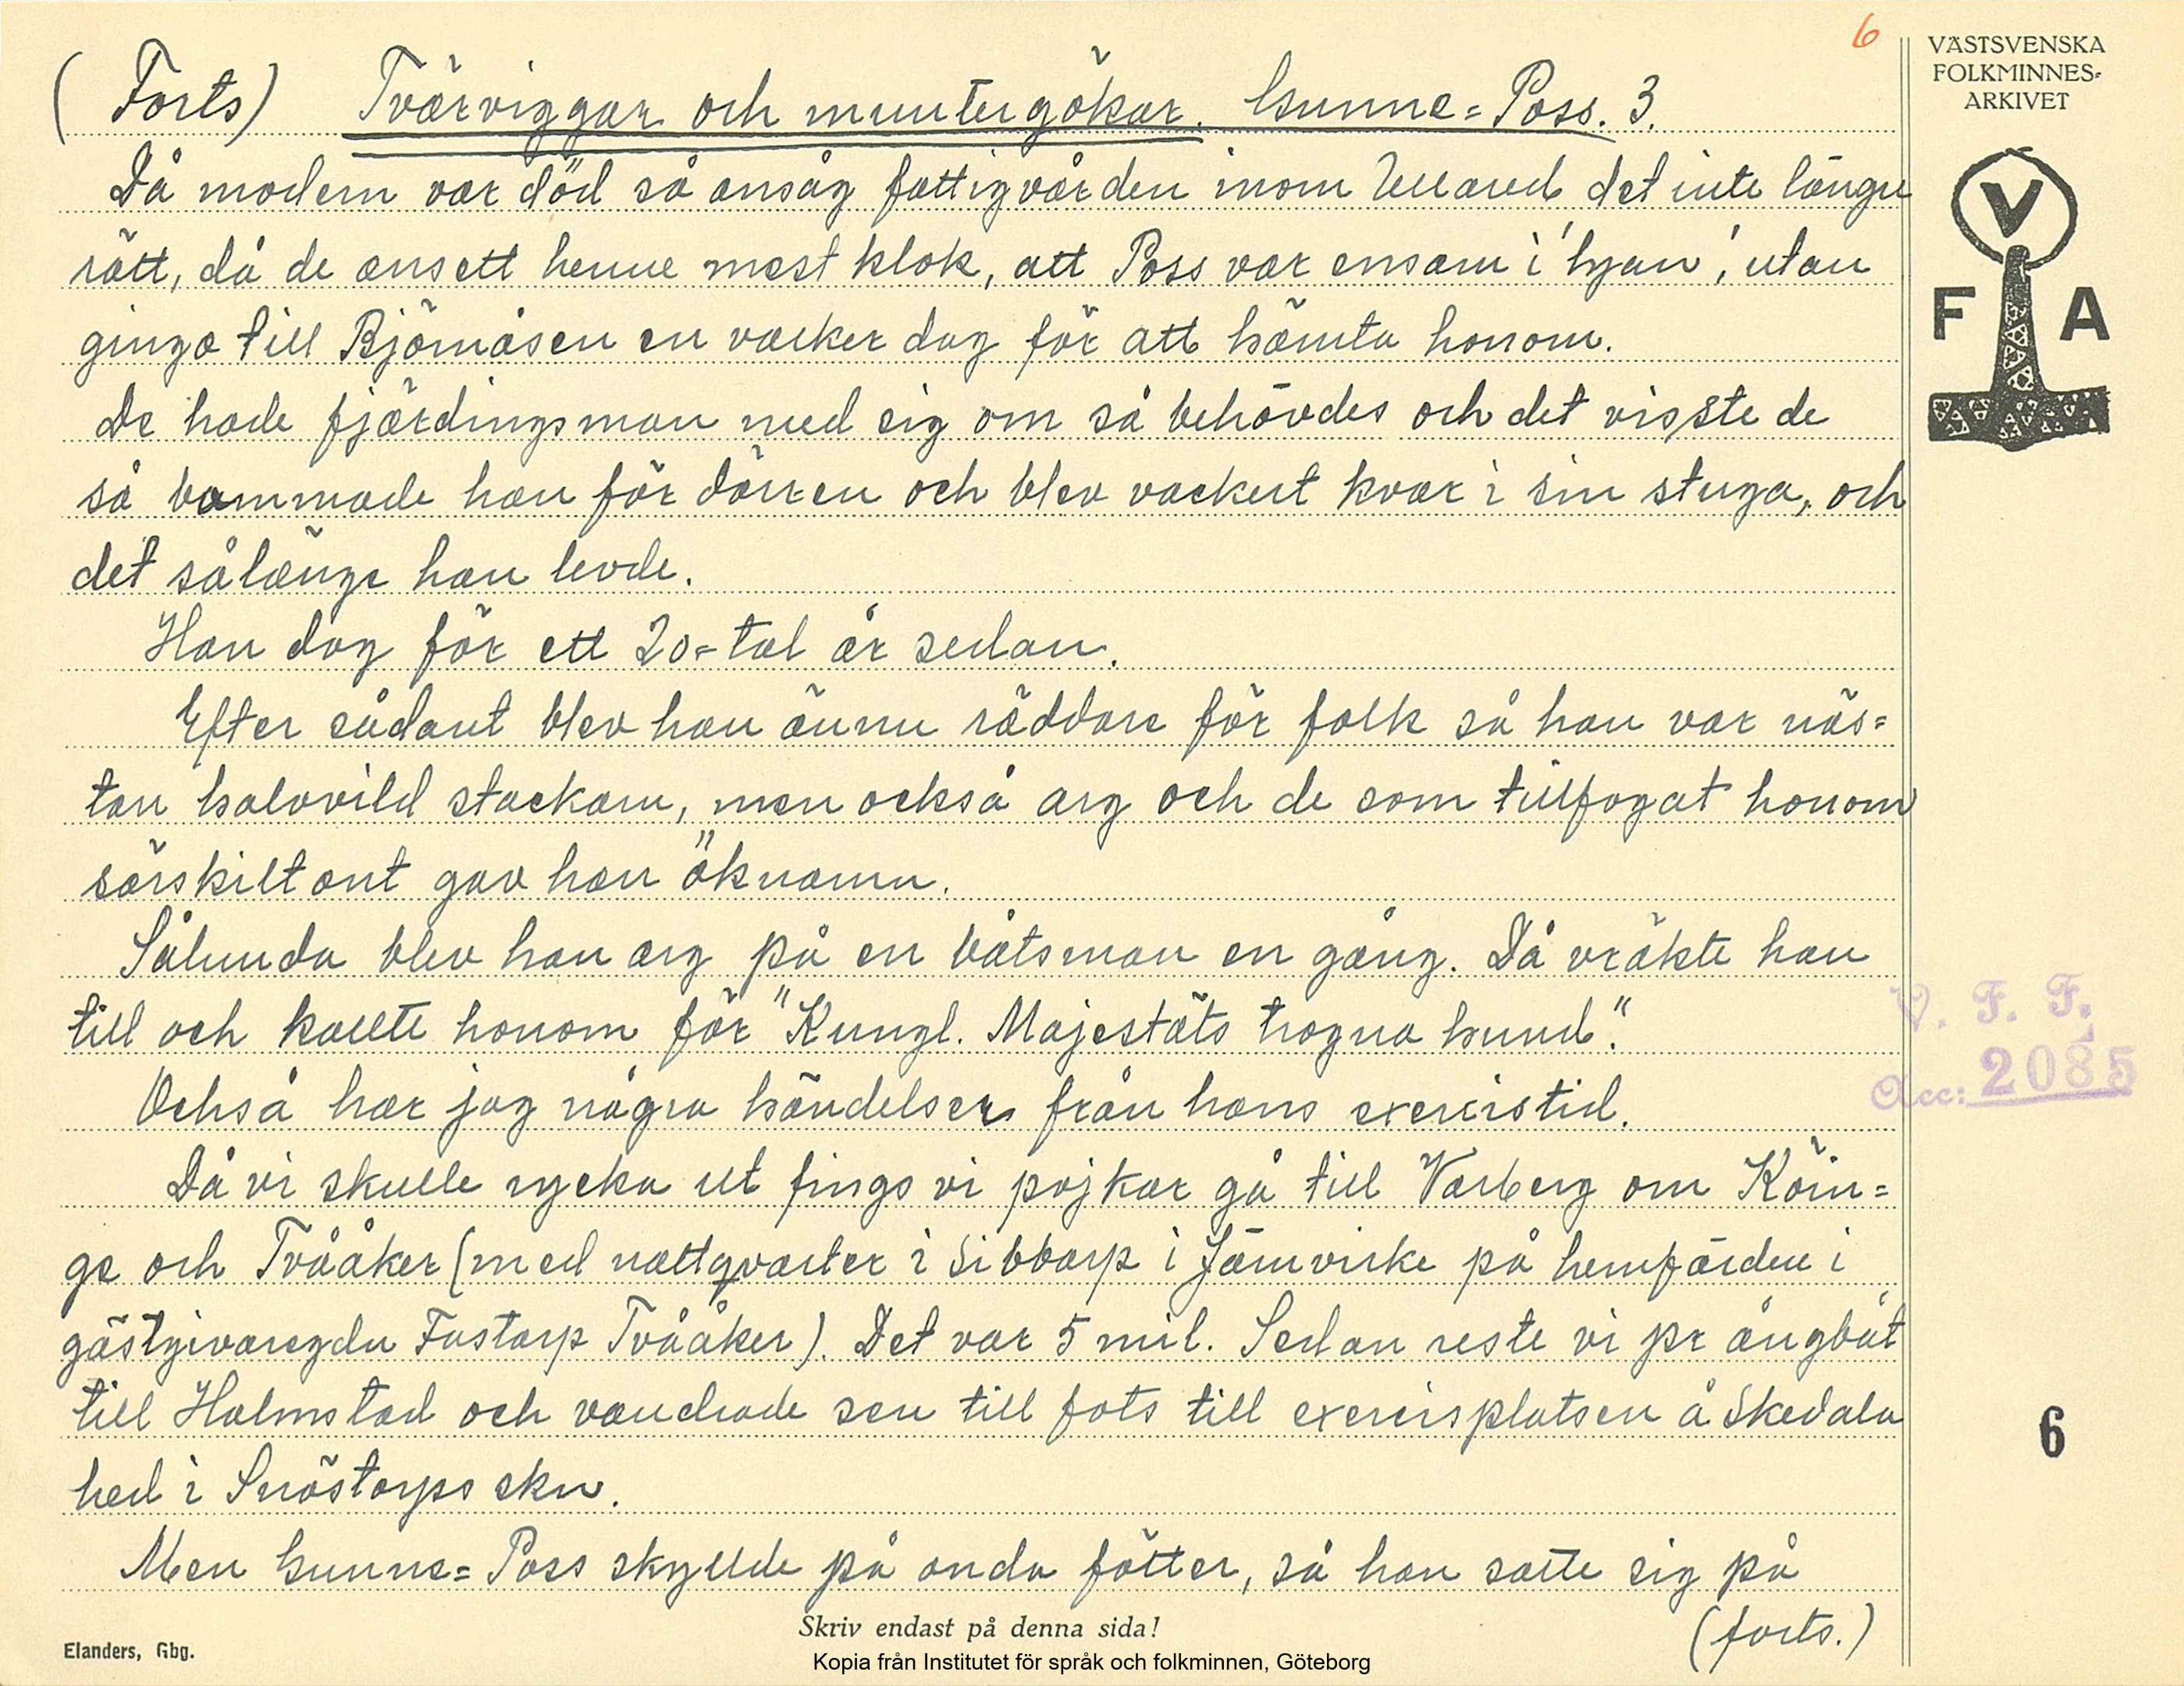 6
VÄSTSVENSKA
FOLKMINNES-
ARKIVET
(Forts) Tvärviggar och muntergökar. Gunne=Poss. 3.
Då modern var död så ansåg fattigvården inom Ullared det inte längre
rätt, då de ansett henne mest klok, att Poss var ensam i 'lyan', utan
gingo till Björnåsen en vacker dag för att hämta honom.
De hade fjärdingsman med sig om så behövdes och det visste de
så bommade han för dörren och blev vackert kvar i sin stuga, och
det sålänge han levde.
Han dog för ett 20-tal år sedan.
Efter sådant blev han ännu räddare för folk så han var näs=
tan halvvild stackarn, men också arg och de som tillfogat honom
särskilt ont gav han öknamn.
Sålunda blev han arg på en båtsman en gång. Då vräkte han
till och kallte honom för "Kungl. Majestäts trogna hund".
Också har jag några händelser från hans exercistid.
Då vi skulle rycka ut fingo vi pojkar gå till Varberg om Köin=
ge och Tvååker (med nattqvarter i Sibbarp i Järnvirke på hemfärden i
gästgivaregdn Fastarp Tvååker). Det var 5 mil. Sedan reste vi pr ångbåt
till Halmstad och vandrade sen till fots till exercisplatsen å Skedala
hed i Snöstorps skn.
Men Gunne=Poss skyllde på onda fötter, så han satte sig på
(forts.)
V
F A
V. F. F.
Acc: 2085
6
Skriv endast på denna sida!
Elanders, Gbg.
Kopia från Institutet för språk och folkminnen, Göteborg